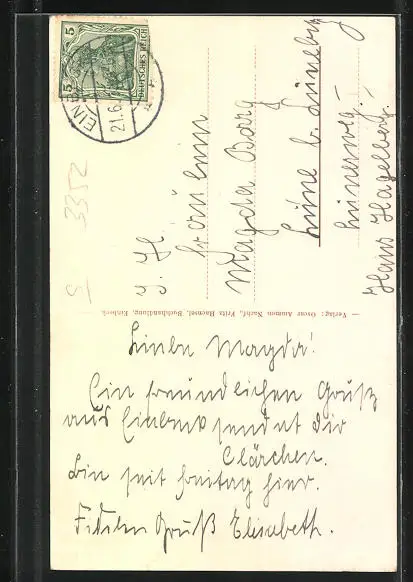 5
DEUTSCHES REICH
EIN
21.6.
S 3352
Fräulein
Magda Borg
Lüne b. Lüneburg
Lünerweg.
Haus Hagelberg.
— Verlag: Oscar Ammon Nachf., Fritz Baensel, Buchhandlung, Einbeck.
Liebe Magda!
Ein freundlichen Gruß
aus Einbeck sendet dir
Clärchen.
Bin seit Freitag hier.
Fidelen Gruß Elisabeth.